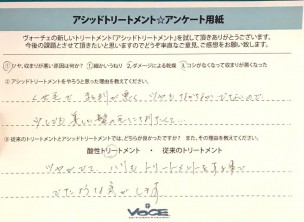 アシッドトリートメント☆アンケート用紙
ヴォーチェの新しいトリートメント「アシッドトリートメント」を試して頂きありがとうございます。
今後の課題とさせて頂きたいと思いますのでどうぞ率直なご意見、ご感想をお願い致します。
①ツヤ、収まりが悪い原因は何か? ①細かいうねり 2、ダメージによる乾燥 ③コシがなくって収まりが悪くなった
②アシッドトリートメントをやろうと思った理由を教えてください。
くせ毛で、まとまりが悪く、ツヤもなかなかでないので、
少しでも美しい髪の毛になりたくて。
③従来のトリートメントとアシッドトリートメントでは、どちらが良かったですか? また、その理由を教えてください。
酸性トリートメント ・ 従来のトリートメント
ツヤがでて、ハリもトリートメントをする事で
でたような気がします
VOCE